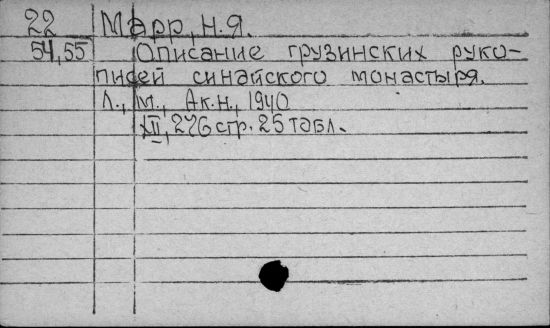 22 Марр, Н.Я.
54,55 Описание грузинских руко-
писей синайского монастыря.
Л., М., Ак.Н., 1940
XII, 276 стр. 25 табл.